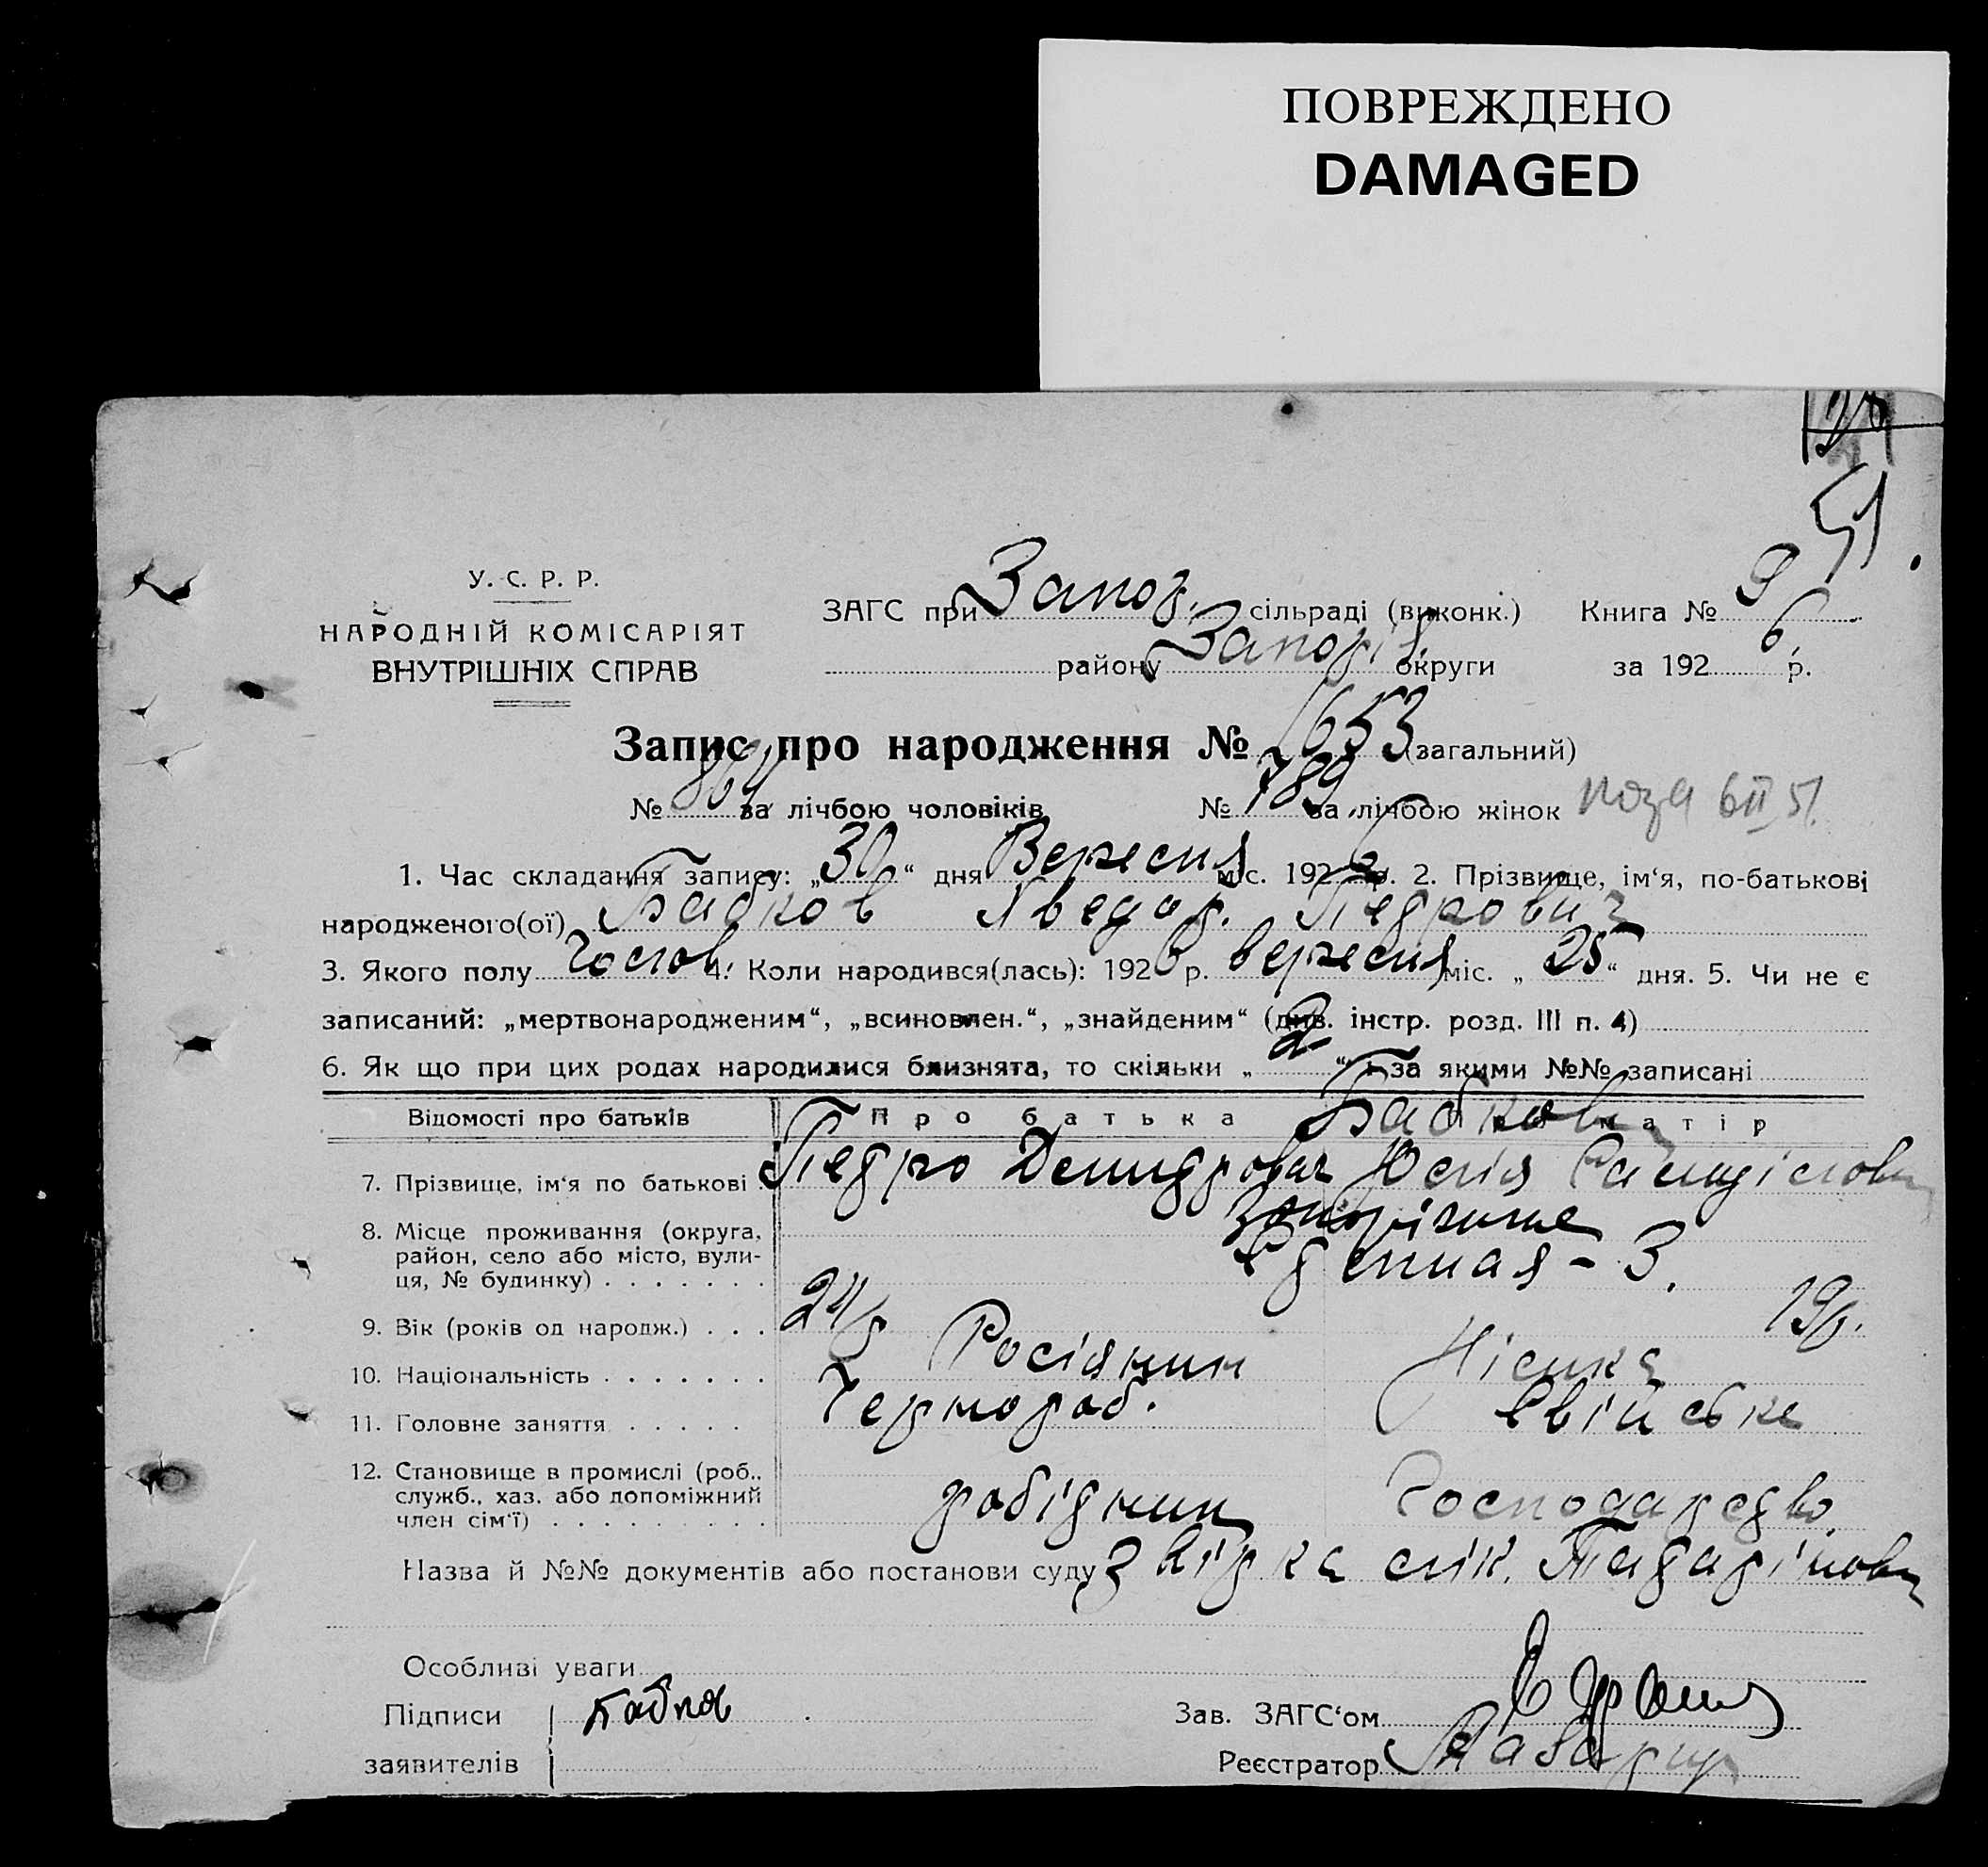 ПОВРЕЖДЕНО
DAMAGED
51.
У. С. Р. Р.
НАРОДНІЙ КОМІСАРІЯТ
ВНУТРІШНІХ СПРАВ
ЗАГС при Запоз. сільраді (виконк.) Книга № 9
району Запоріз. округи за 1926 р.
Запис про народження № 1653 (загальний)
№ 864 за лічбою чоловіків № 789 за лічбою жінок
1. Час складання запису: „30“ дня Вересня міс. 1926 р. 2. Прізвище, ім‘я, по-батькові
народженого(ої) Бабков Хведор. Педрович
3. Якого полу Чолов. 4. Коли народився(лась): 1926 р. вересня міс. „25“ дня. 5. Чи не є
записаний: „мертвонародженим“, „всиновлен.“, „знайденим“ (див. інстр. розд. III п. 4)
6. Як що при цих родах народилися близнята, то скільки „2“ і за якими №№ записані
Відомості про батьків Про батька Про матір
Бабков
7. Прізвище, ім‘я по батькові Педро Демидрович Юлія
8. Місце проживання (округа, район, село або місто, вулиця, № будинку) Запоріжже
3.
9. Вік (років од народж.) 24 19
10. Національність Росіянин Німка
11. Головне заняття Чернороб. Свійське
12. Становище в промислі (роб., служб., хаз. або допоміжний член сім‘ї) робідник Господарсдво
Назва й №№ документів або постанови суду
Особливі уваги
Підписи заявителів Бабков
Зав. ЗАГС‘ом
Реєстратор